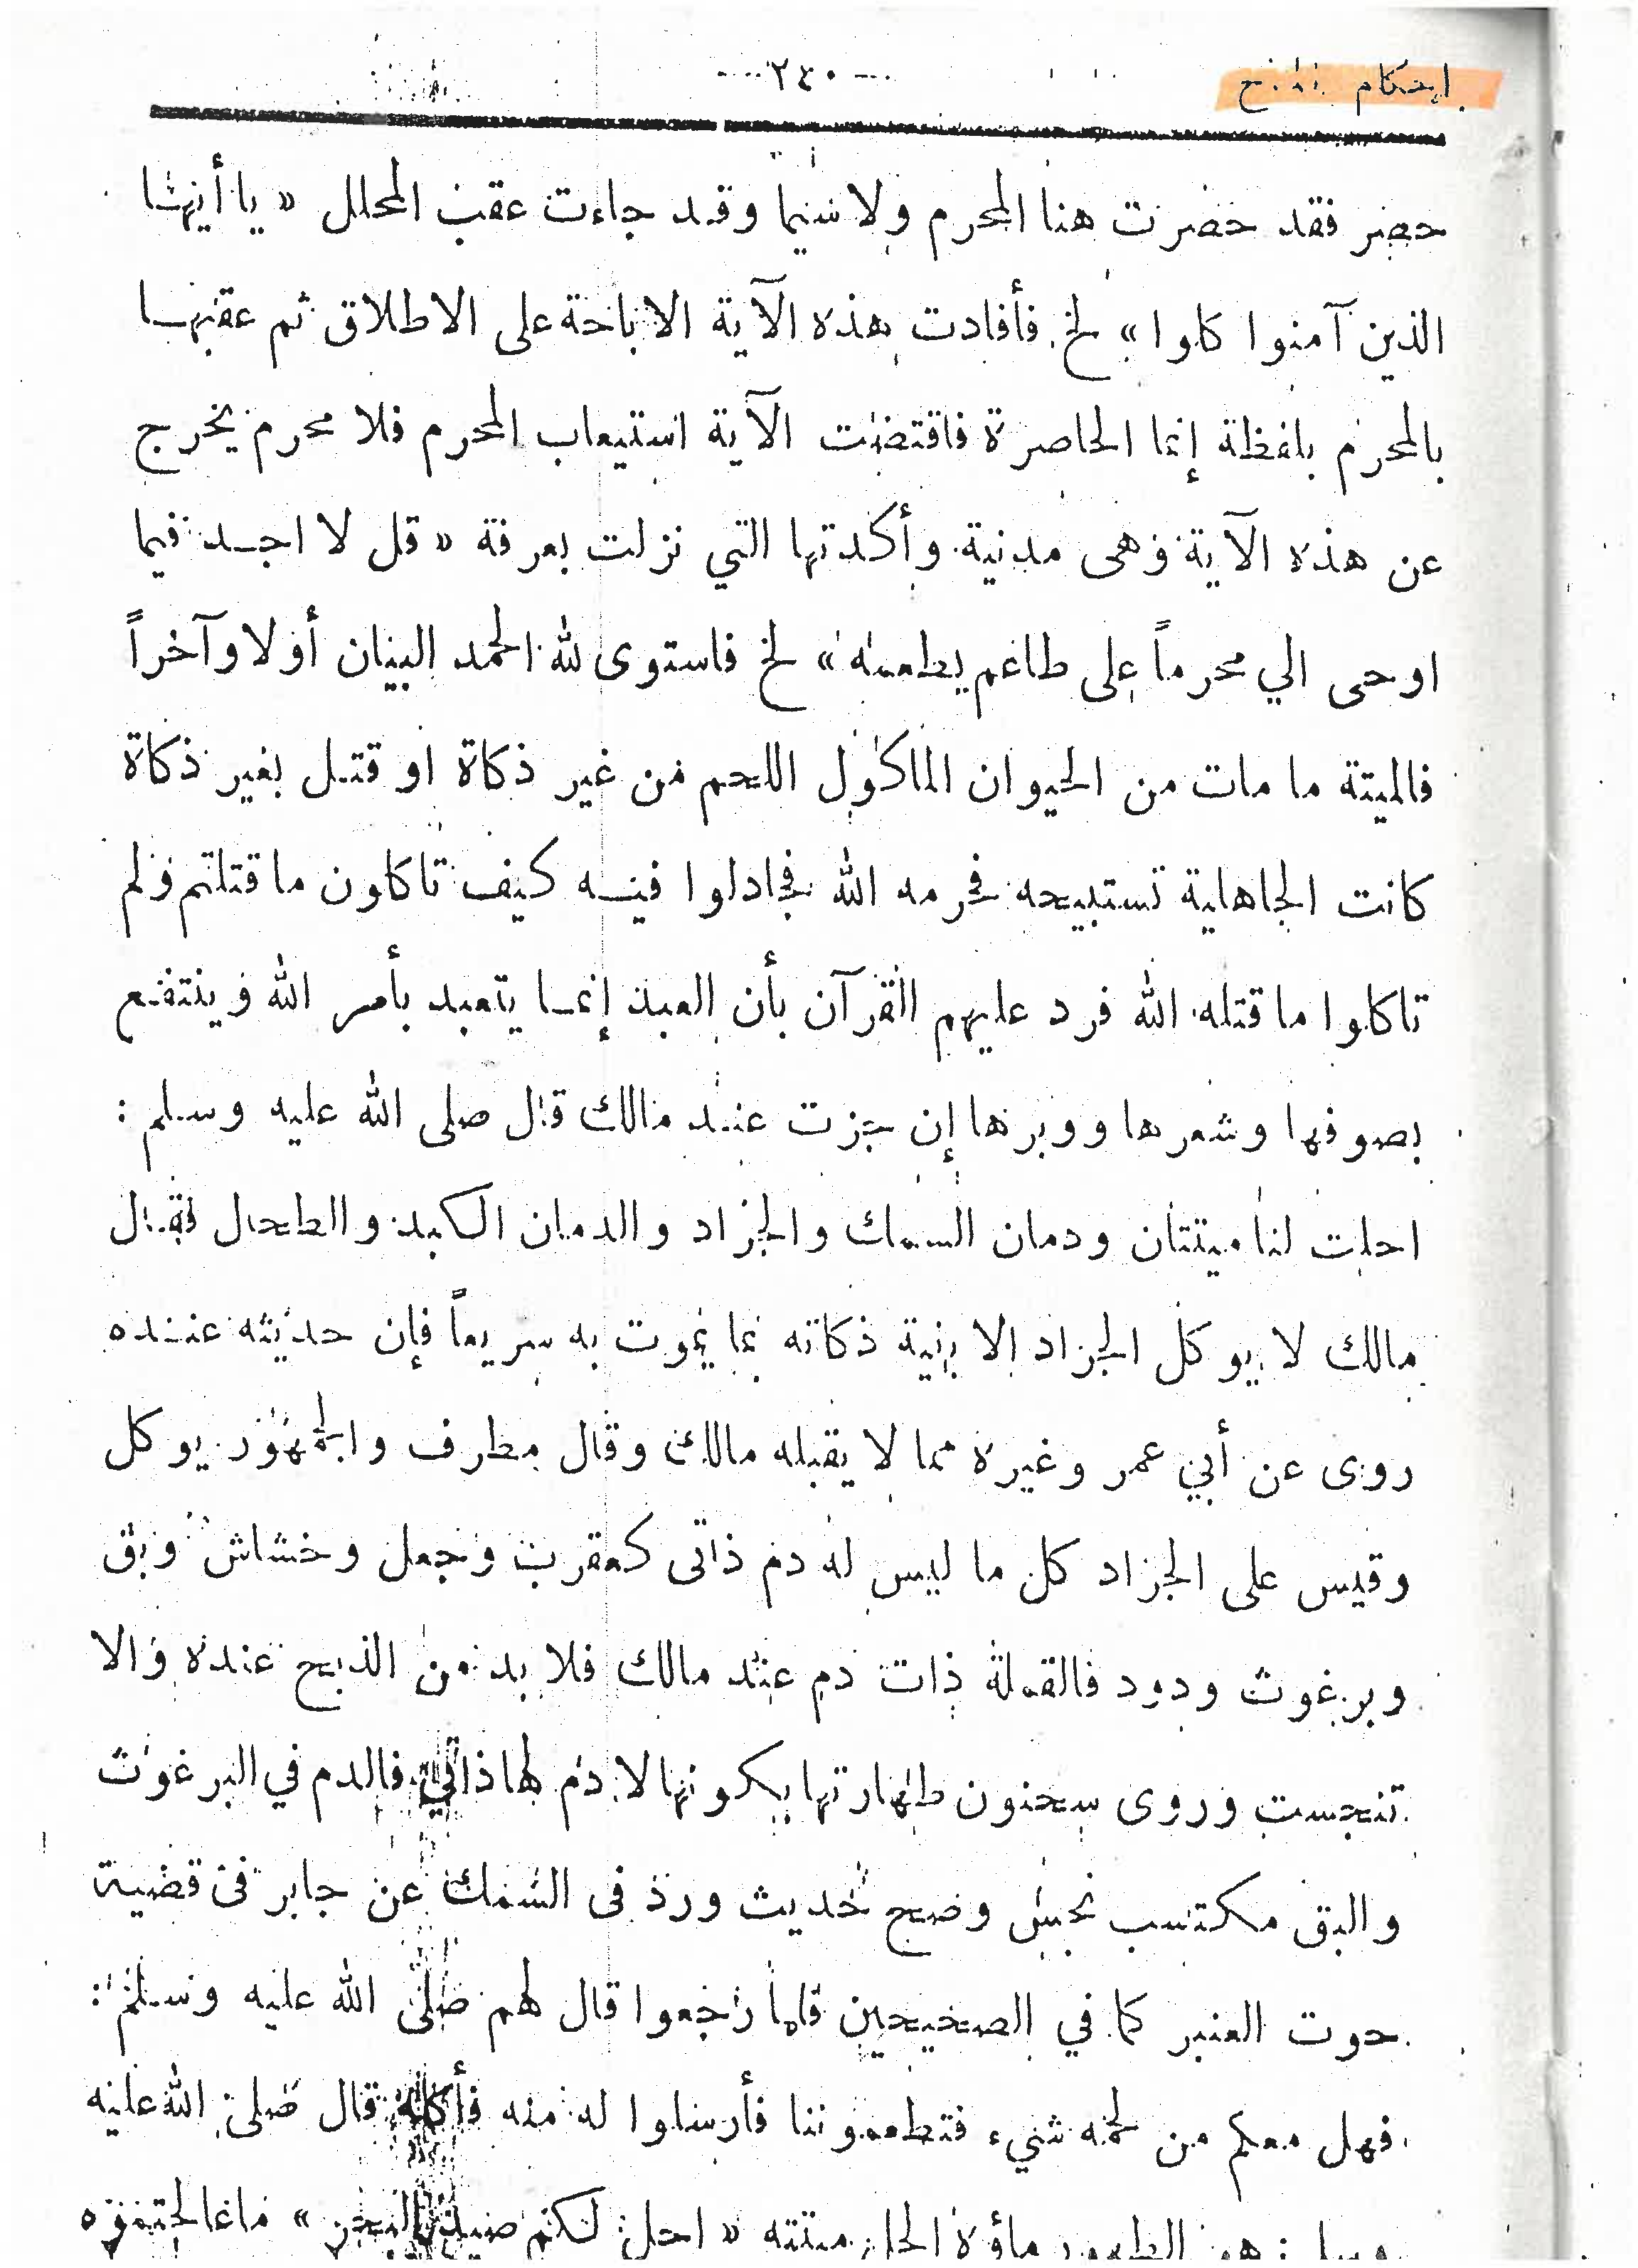 احكام
— ٢٤٠ —
حصر فقد حصرت هنا المحرم ولا سيما وقد جاءت عقب المحلل « يا أيها
الذين آمنوا كلوا » لخ فأفادت هذه الآية الاباحة على الاطلاق ثم عقبها
بالمحرم بلفظة إنما الحاصرة فاقتضت الآية استيعاب المحرم فلا محرم يخرج
عن هذه الآية وهى مدنية وأكدتها التي نزلت بعرفة « قل لا اجد فيما
اوحى الي محرماً على طاعم يطعمه » لخ فاستوى لله الحمد البيان أولا وآخراً
فالميتة ما مات من الحيوان الماكول اللحم من غير ذكاة او قتل بغير ذكاة
كانت الجاهلية تستبيحه فحرمه الله فجادلوا فيه كيف تاكلون ما قتلتم ولم
تاكلوا ما قتله الله فرد عليهم القرآن بأن العبد إنما يتعبد بأمر الله وينتفع
بصوفها وشعرها ووبرها إن جزت عند مالك قال صلى الله عليه وسلم :
احلت لنا ميتتان ودمان السمك والجراد والدمان الكبد والطحال فقال
مالك لا يوكل الجراد الا بنية ذكاته بما يموت به سريعاً فإن حديثه عنده
روى عن أبي عمر وغيره مما لا يقبله مالك وقال مطرف والجمهور يوكل
وقيس على الجراد كل ما ليس له دم ذاتى كعقرب وجعل وخشاش وبق
وبرغوث ودود فالقملة ذات دم عند مالك فلا بد من الذبح عنده والا
تنجست وروى سحنون طهارتها بكونها لا دم لها ذاتي فالدم في البرغوث
والبق مكتسب نجس وصح حديث ورد فى السمك عن جابر فى قضية
حوت العنبر كما في الصحيحين فلما رجعوا قال لهم صلى الله عليه وسلم :
فهل معكم من لحمه شيء فتطعموننا فأرسلوا له منه فأكله قال صلى الله عليه
وسلم : هو الطهور ماؤه الحل ميتته « احل لكم صيد البحر »